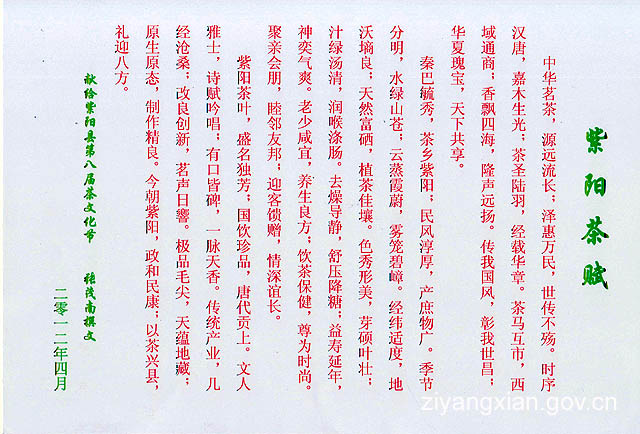 紫阳茶赋
中华茗茶，源远流长；泽惠万民，世传不殇。时序
汉唐，嘉木生光；茶圣陆羽，经载华章。茶马互市，西
域通商；香飘四海，隆声远扬。传我国风，彰我世昌；
华夏瑰宝，天下共享。
秦巴毓秀，茶乡紫阳；民风淳厚，产庶物广。季节
分明，水绿山苍；云蒸霞蔚，雾笼碧嶂。经纬适度，地
沃墒良；天然富硒，植茶佳壤。色秀形美，芽硕叶壮；
汁绿汤清，润喉涤肠。去燥导静，舒压降糖；益寿延年，
神奕气爽。老少咸宜，养生良方；饮茶保健，尊为时尚。
聚亲会朋，睦邻友邦；迎客馈赠，情深谊长。
紫阳茶叶，盛名独芳；国饮珍品，唐代贡上。文人
雅士，诗赋吟唱；有口皆碑，一脉天香。传统产业，几
经沧桑；改良创新，茗声日響。极品毛尖，天蕴地藏；
原生原态，制作精良。今朝紫阳，政和民康；以茶兴县，
礼迎八方。
献给紫阳县第八届茶文化节 张茂南撰文
二零一二年四月
ziyangxian.gov.cn